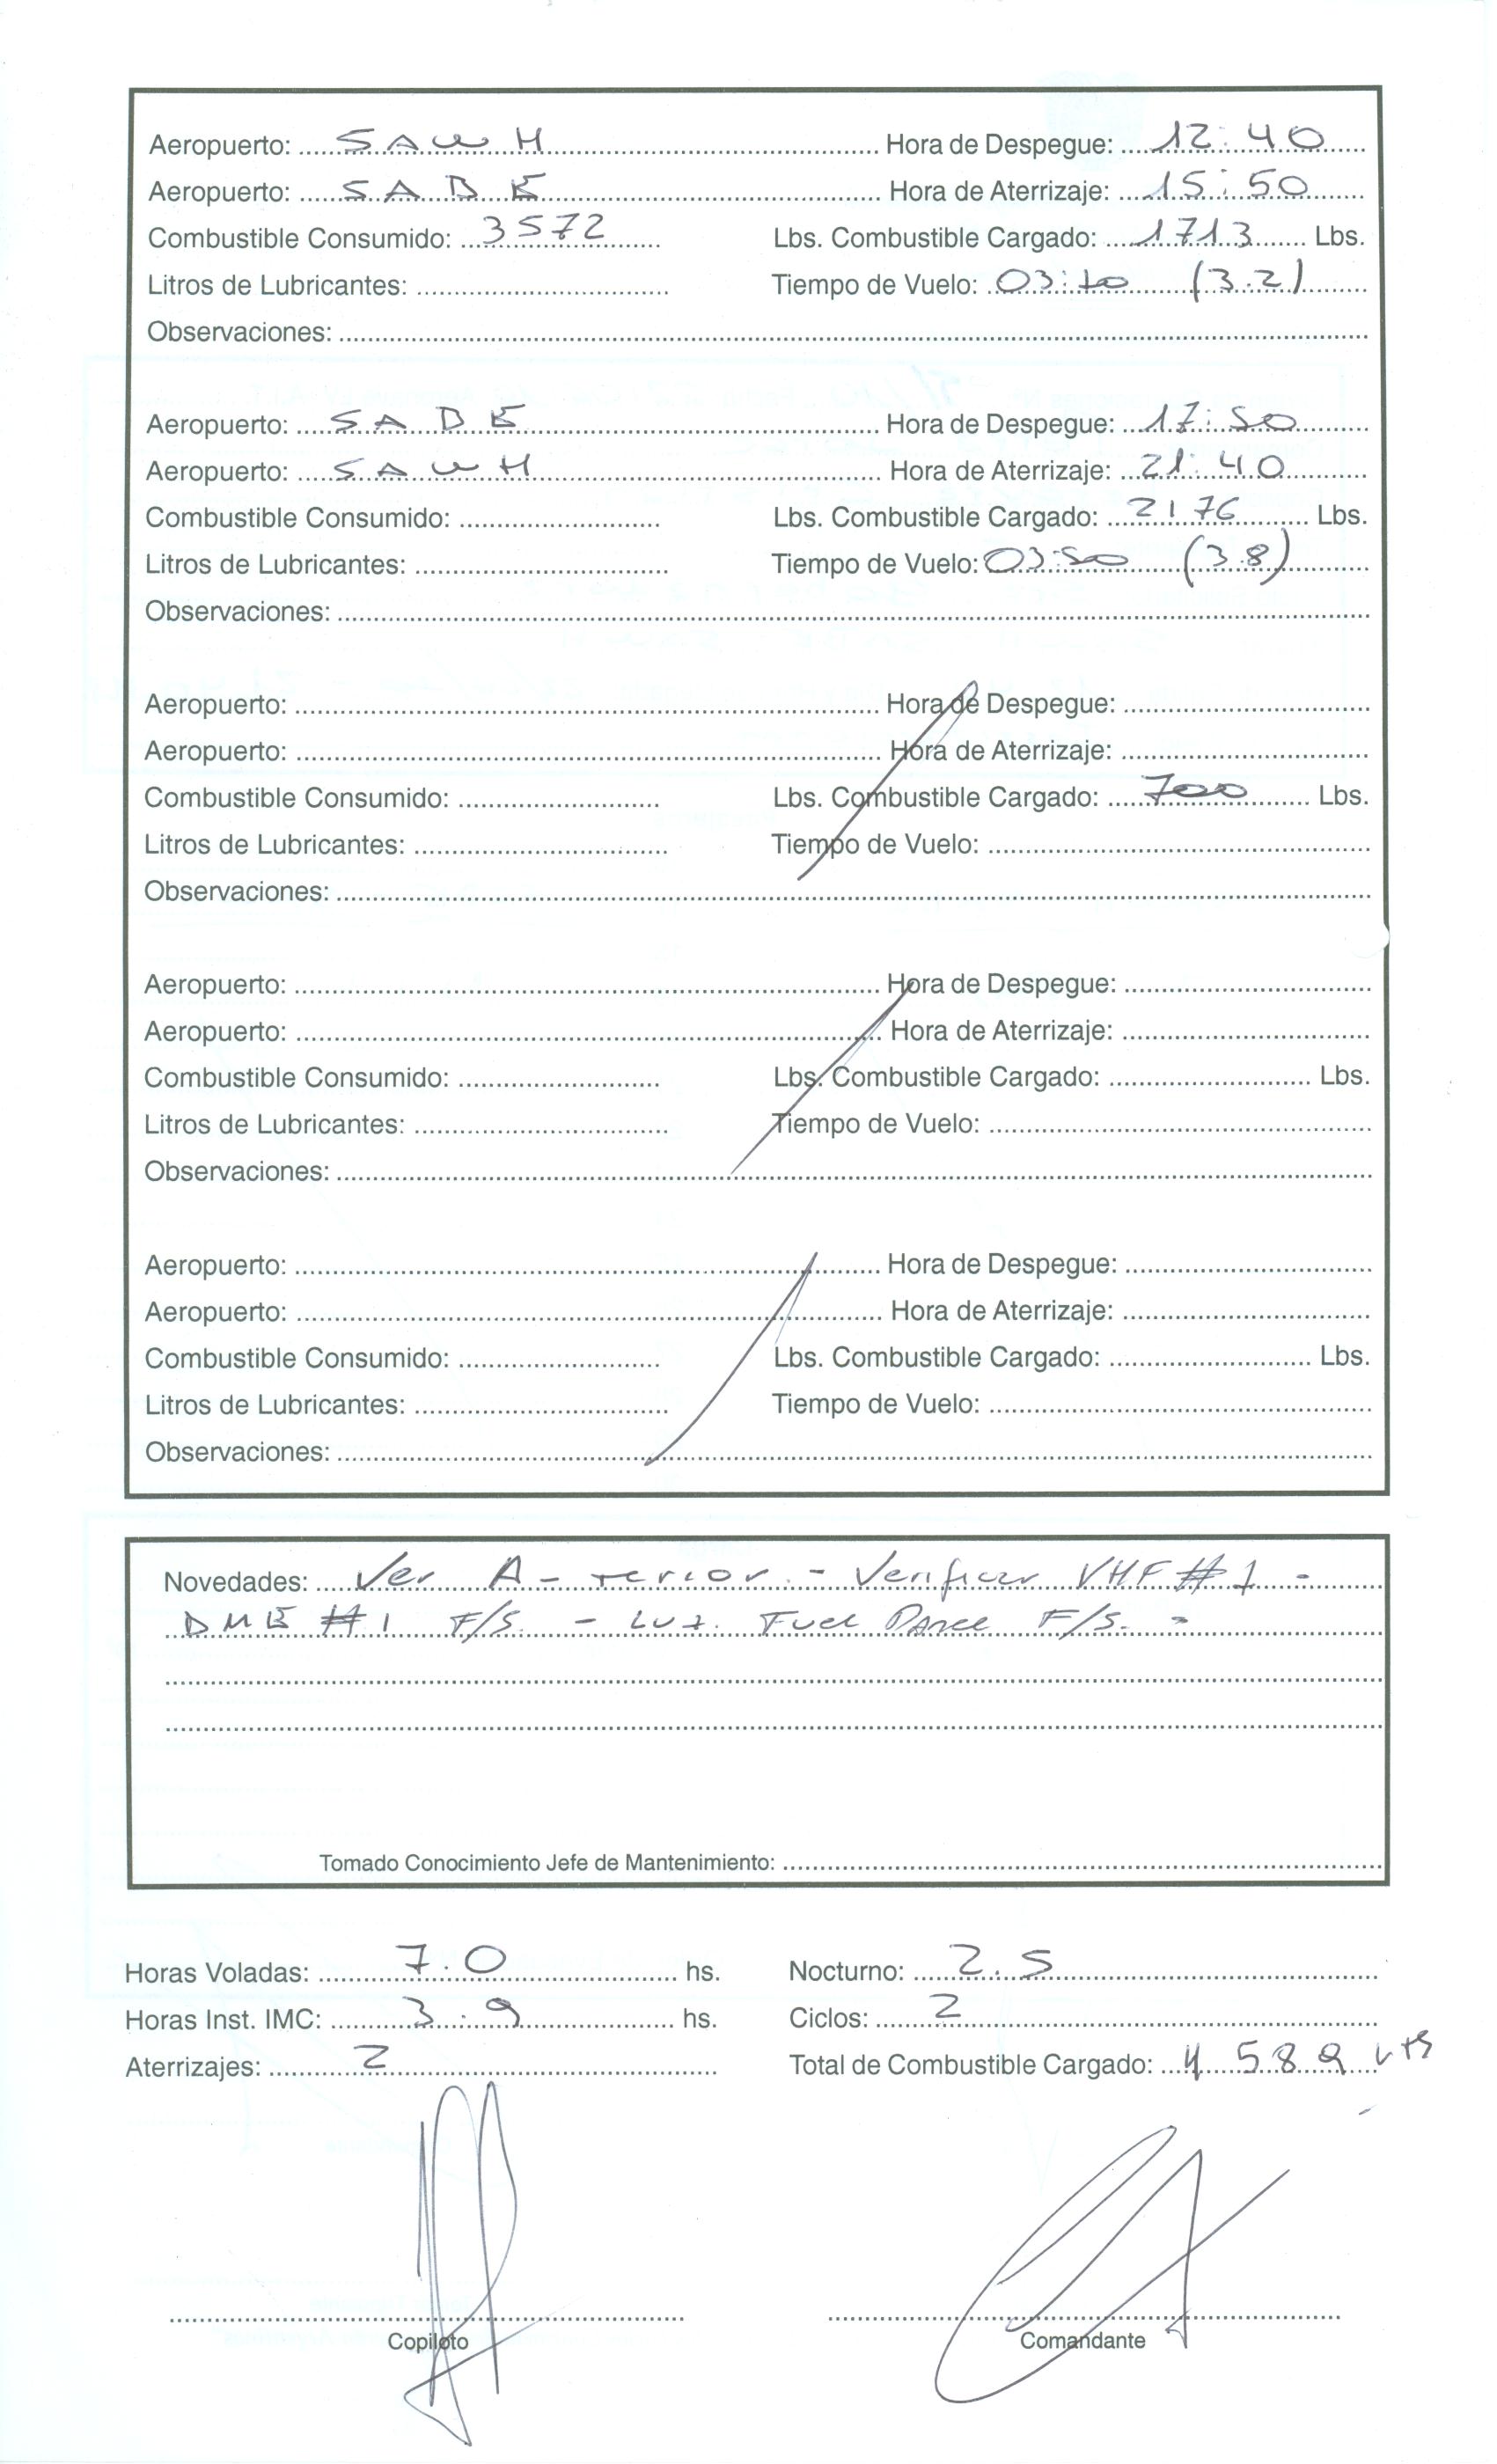 Aeropuerto: SAWH Hora de Despegue: 12:40
Aeropuerto: SADE Hora de Aterrizaje: 15:50
Combustible Consumido: 3572 Lbs. Combustible Cargado: 1713 Lbs.
Litros de Lubricantes: Tiempo de Vuelo: 03:10 (3.2)
Observaciones:
Aeropuerto: SADE Hora de Despegue: 17:50
Aeropuerto: SAWH Hora de Aterrizaje: 21:40
Combustible Consumido: Lbs. Combustible Cargado: 2176 Lbs.
Litros de Lubricantes: Tiempo de Vuelo: 03:50 (3.8)
Observaciones:
Aeropuerto: Hora de Despegue:
Aeropuerto: Hora de Aterrizaje:
Combustible Consumido: Lbs. Combustible Cargado: 700 Lbs.
Litros de Lubricantes: Tiempo de Vuelo:
Observaciones:
Aeropuerto: Hora de Despegue:
Aeropuerto: Hora de Aterrizaje:
Combustible Consumido: Lbs. Combustible Cargado: Lbs.
Litros de Lubricantes: Tiempo de Vuelo:
Observaciones:
Aeropuerto: Hora de Despegue:
Aeropuerto: Hora de Aterrizaje:
Combustible Consumido: Lbs. Combustible Cargado: Lbs.
Litros de Lubricantes: Tiempo de Vuelo:
Observaciones:
Novedades: Ver Anterior. - Verificar VHF #1 -
DME #1 F/S. - Luz Fuel Panel F/S. -
Tomado Conocimiento Jefe de Mantenimiento:
Horas Voladas: 7.0 hs. Nocturno: 2.5
Horas Inst. IMC: 3.9 hs. Ciclos: 2
Aterrizajes: 2 Total de Combustible Cargado: 4589 lts
Copiloto Comandante